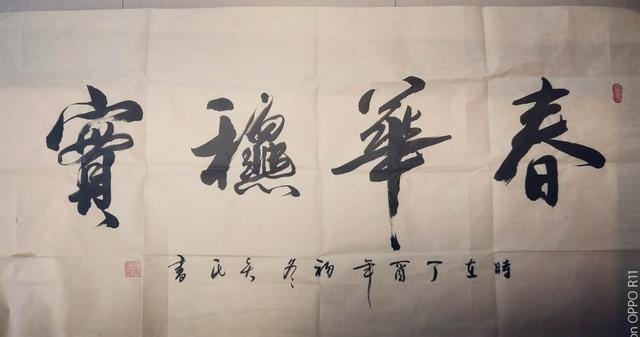 春華龝實
時在丁酉年初冬民書
on OPPO R11